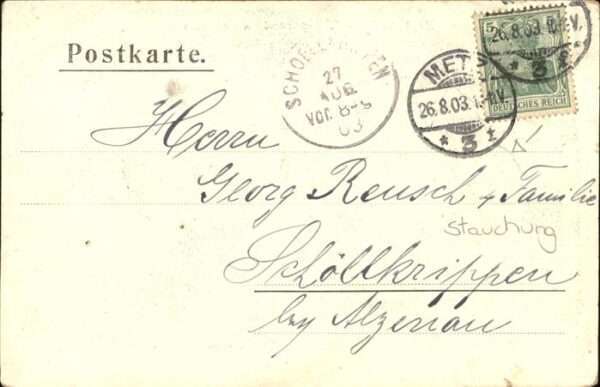 Postkarte.
SCHOELLKRIPPEN
27
AUG
Vor. 8-9
03
METZ
26.8.03.
* 3 z
5
26.8.03.
* 3
DEUTSCHES REICH
Herrn
Georg Reusch & Familie
Stauchung
Schöllkrippen
bey Alzenau